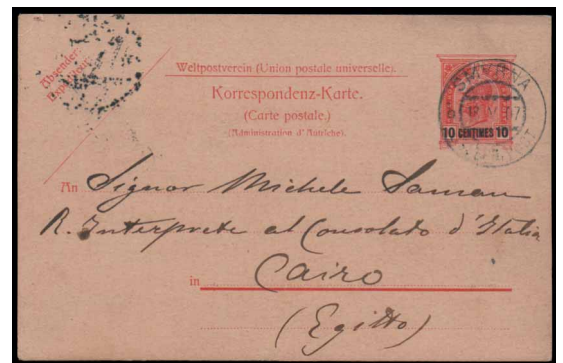 Absender:
Weltpostverein (Union postale universelle).
Korrespondenz-Karte.
(Carte postale.)
(Administration d'Autriche).
SMYRNA
10 CENTIMES 10
An Signor Michele
R. Interprete al Consolato d'Italia
in Cairo
(Egitto)